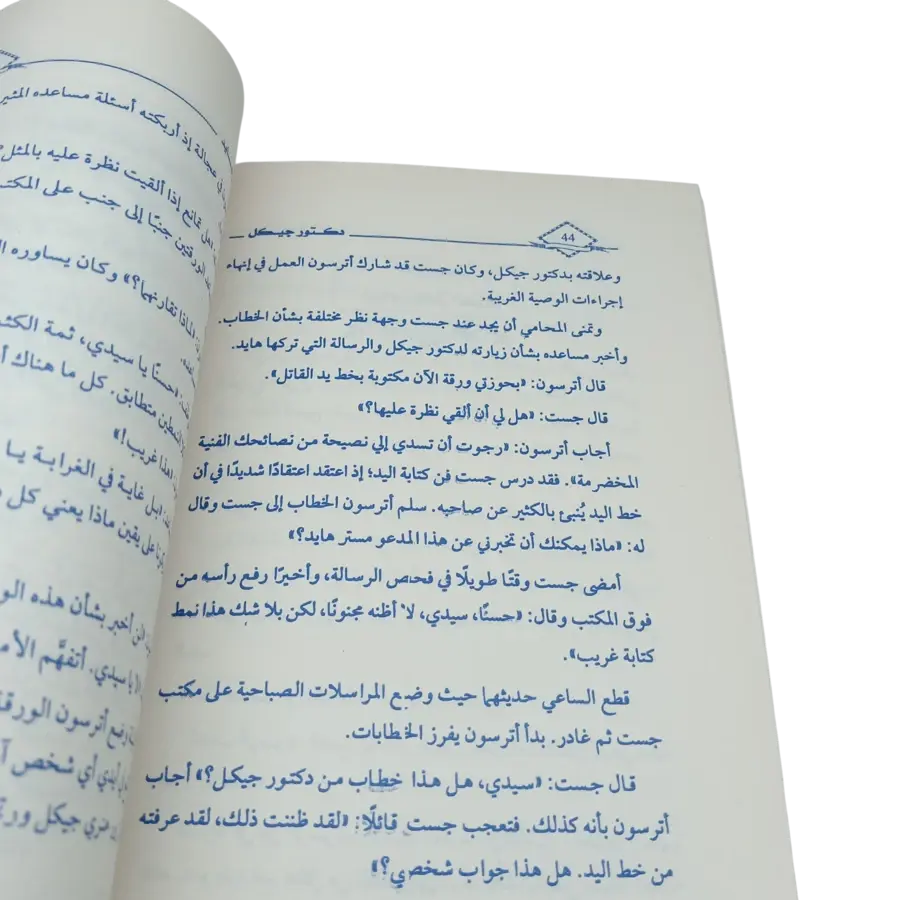 44
دكتور جيكل
وعلاقته بدكتور جيكل، وكان جست قد شارك أترسون العمل في إنهاء
إجراءات الوصية الغريبة.
وتمنى المحامي أن يجد عند جست وجهة نظر مختلفة بشأن الخطاب.
وأخبر مساعده بشأن زيارته لدكتور جيكل والرسالة التي تركها هايد.
قال أترسون: «بحوزتي ورقة الآن مكتوبة بخط يد القاتل».
قال جست: «هل لي أن ألقي نظرة عليها؟»
أجاب أترسون: «رجوت أن تسدي إلي نصيحة من نصائحك الفنية
المخضرمة». فقد درس جست فن كتابة اليد؛ إذ اعتقد اعتقادًا شديدًا في أن
خط اليد يُنبئ بالكثير عن صاحبه. سلم أترسون الخطاب إلى جست وقال
له: «ماذا يمكنك أن تخبرني عن هذا المدعو مستر هايد؟»
أمضى جست وقتًا طويلًا في فحص الرسالة، وأخيرًا رفع رأسه من
فوق المكتب وقال: «حسنًا، سيدي، لا أظنه مجنونًا، لكن بلا شك هذا نمط
كتابة غريب».
قطع الساعي حديثهما حيث وضع المراسلات الصباحية على مكتب
جست ثم غادر. بدأ أترسون يفرز الخطابات.
قال جست: «سيدي، هل هذا خطاب من دكتور جيكل؟» أجاب
أترسون بأنه كذلك. فتعجب جست قائلًا: «لقد ظننت ذلك، لقد عرفته
من خط اليد. هل هذا جواب شخصي؟»
في عجالة إذ أربكته أسئلة مساعده
تمانع إذا ألقيت نظرة عليه بالمثل
الورقتين جنبًا إلى جنب على
لماذا تقارنهما؟» وكان يساوره
«حسنًا يا سيدي، ثمة
متطابق. كل ما هناك
غريب!»
غاية في الغرابة يا
يقين ماذا يعني كل
أخبر بشأن هذه
يا سيدي. أتفهَّم
رفع أترسون
أيدي أي شخص
جيكل